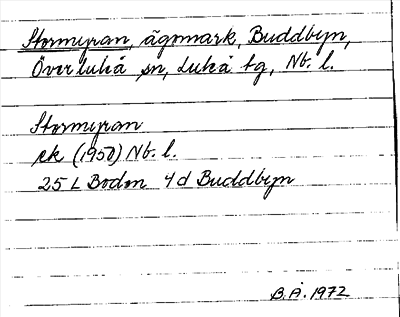 Stormyran, ägomark, Buddbyn,
Överluleå sn, Luleå tg, Nb. l.
Stormyran
ek (1950) Nb. l.
25 L Boden 4 d Buddbyn
B.Å. 1972